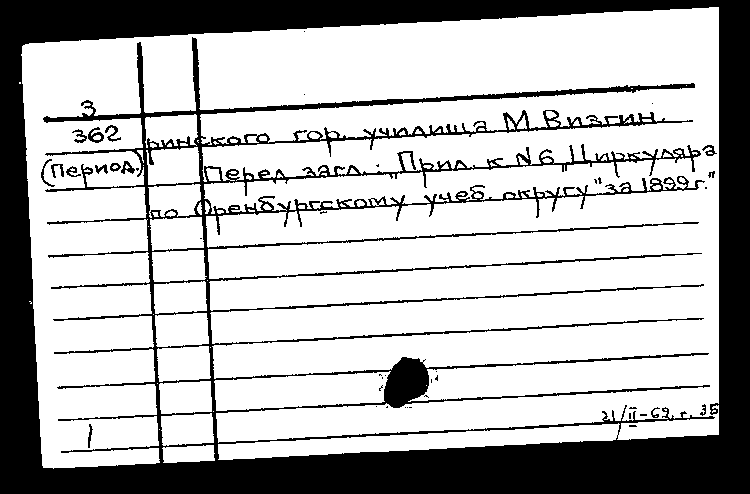 3
362 ринского гор. училища М. Визгин.
(Период.) Перед загл.: „Прил. к N 6 „Циркуляра
по Оренбургскому учеб. округу" за 1899 г."
1
21/II-62 г. 35